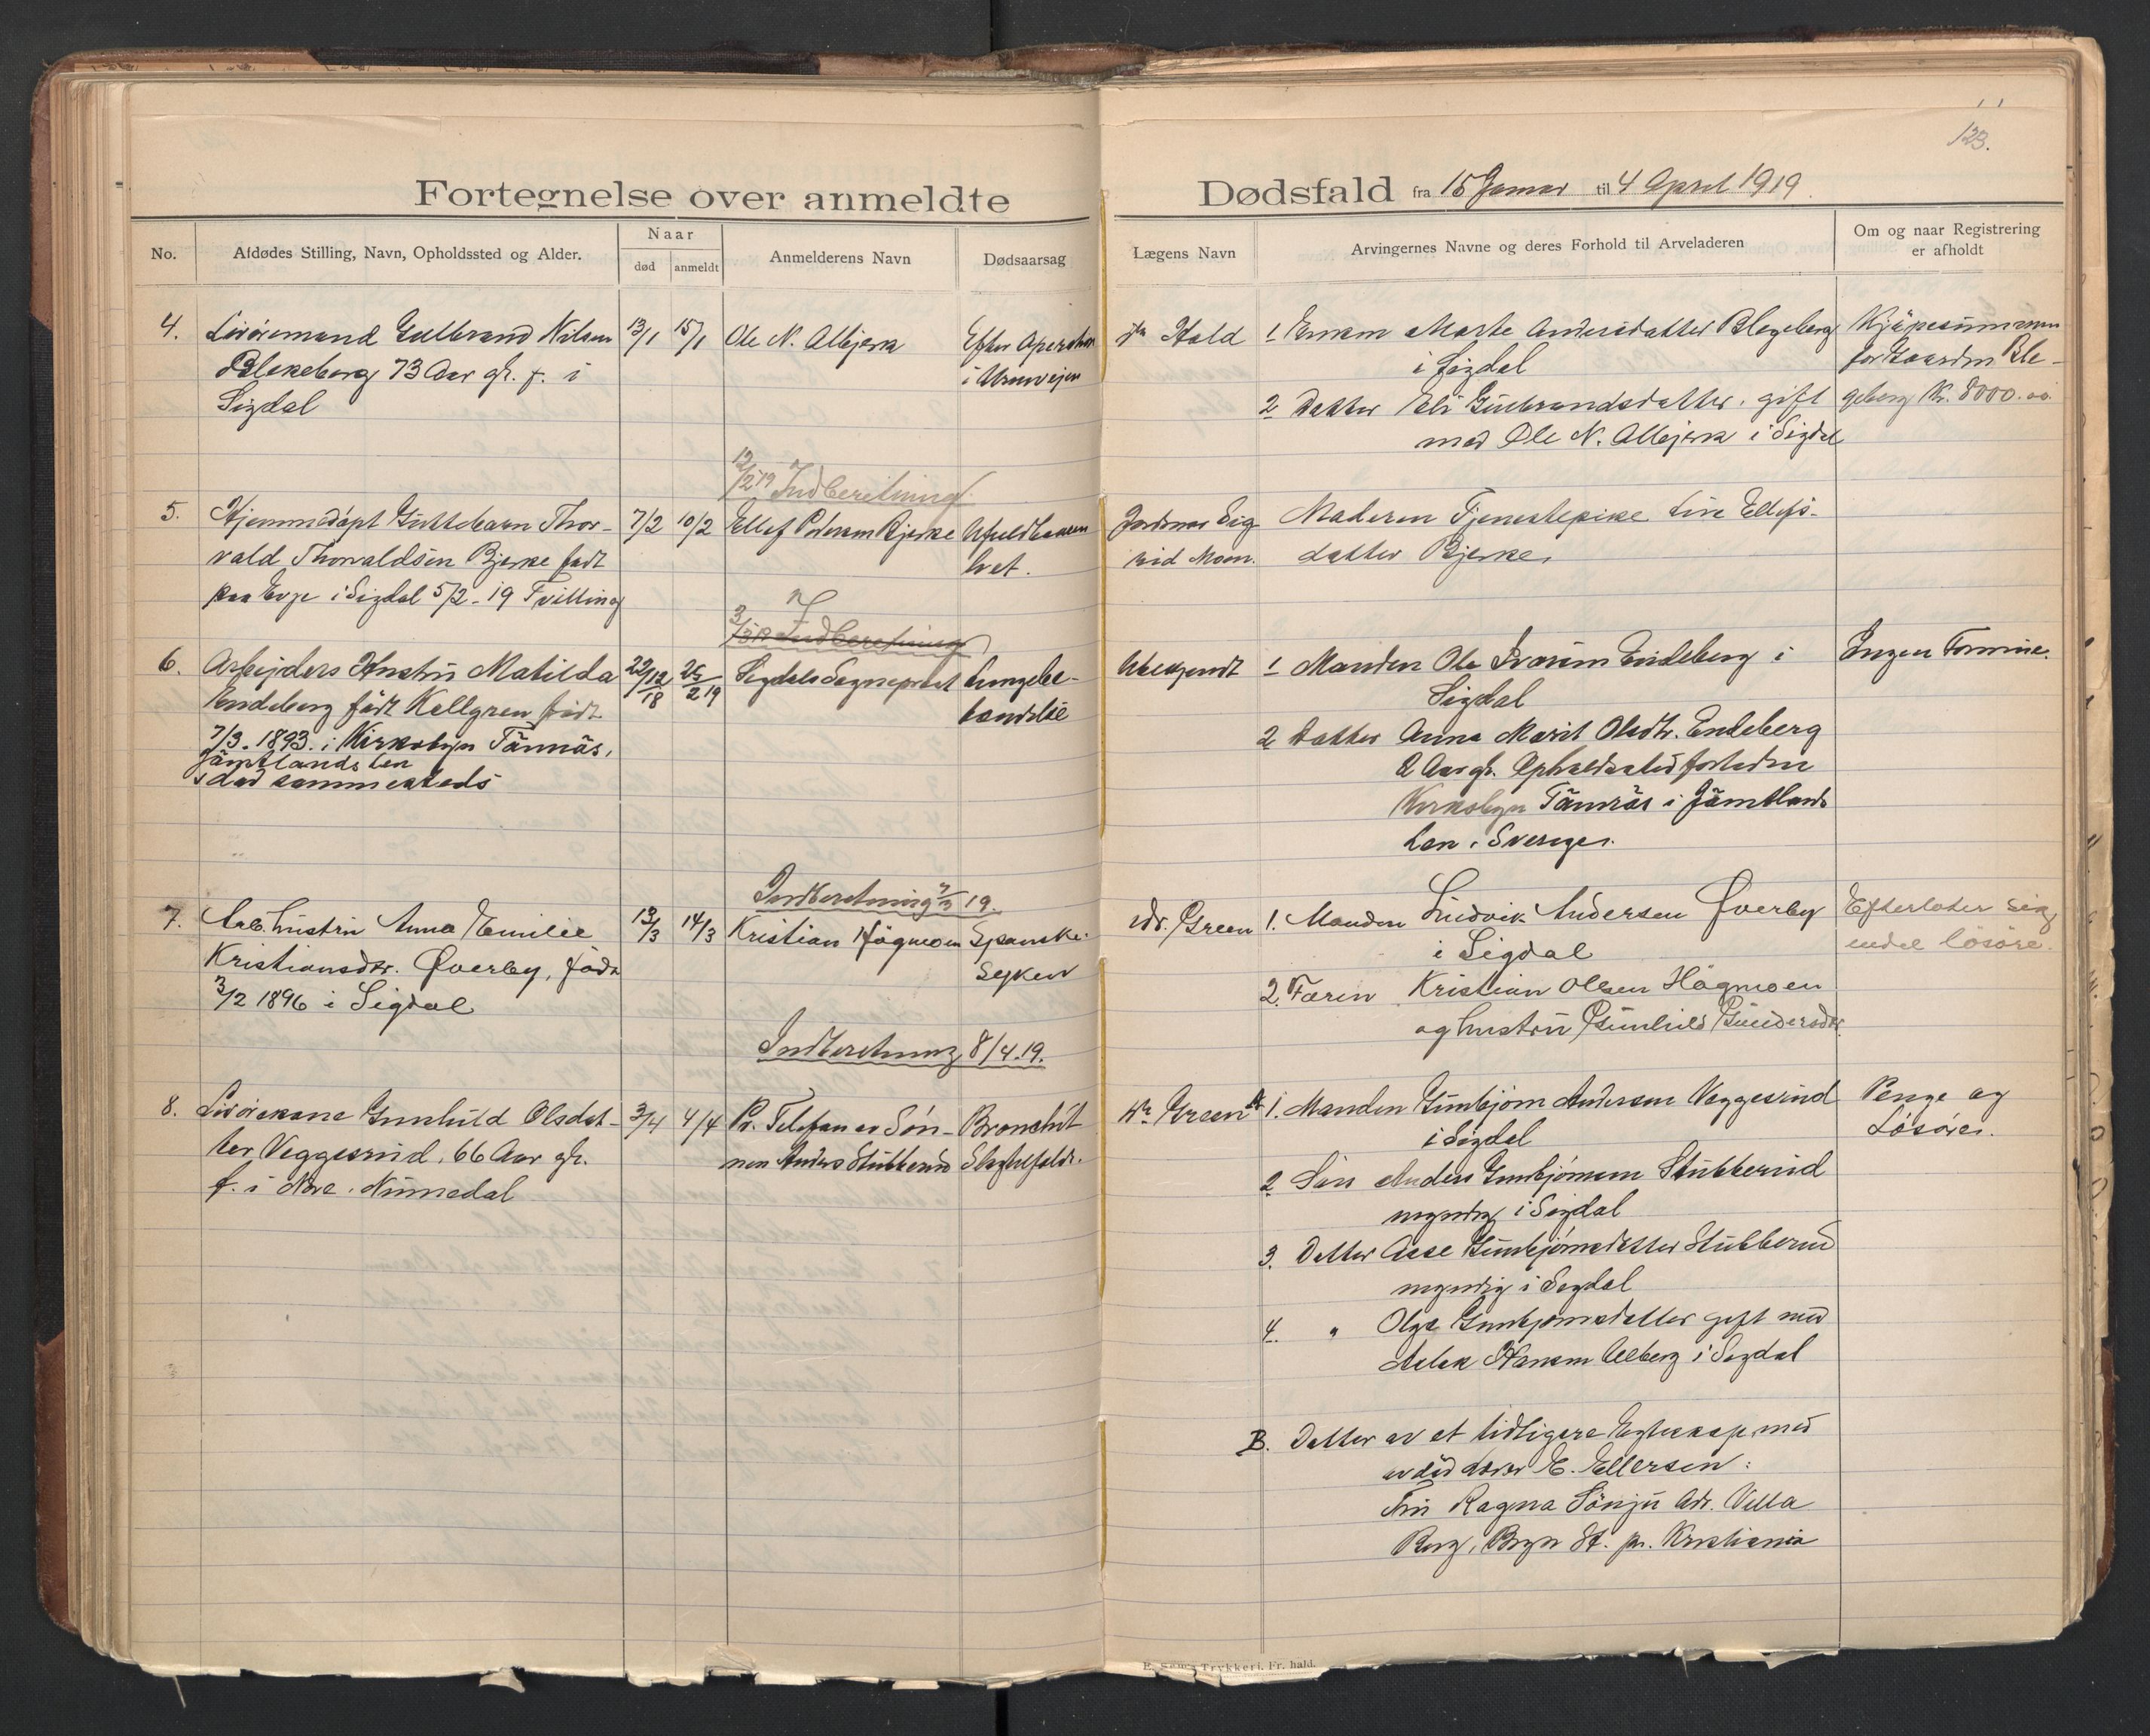 123.
Fortegnelse over anmeldte Dødsfald fra 15 Januar til 4 April 1919.
No.
Afdødes Stilling, Navn, Opholdssted og Alder.
Naar
død
anmeldt
Anmelderens Navn
Dødsaarsag
Lægens Navn
Arvingernes Navne og deres Forhold til Arveladeren
Om og naar Registrering
er afholdt
4.
Livöremand Gulbrand Nilsen
Blekeberg 73 Aar gl. f. i
Sigdal
13/1
15/1
Ole N. Albjerk
Efter Operation
i Urinveien
dr Hald
1 Enken Marte Andersdatter Blegeberg
i Sigdal
2 Datter Eli Gulbrandsdatter gift
med Ole N. Albjerk i Sigdal
Kjøpesummen
for Gaarden Ble-
geberg Kr. 8000.00.
12/2 19 Indberetning
5.
Hjemmedøpt Guttebarn Thor-
vald Thorvaldsen Bjerke født
paa Evje i Sigdal 5/2-19 Tvilling
7/2
10/2
Ellef Pedersen Bjerke
Ufuldbaaren
het.
Jordmor Sig-
rid Moen.
Moderen Tjenestepike Live Ellefs-
datter Bjerke.
Indberetning
6.
Arbejders Hustru Matilda
Endeberg født Kellgren født
7/3. 1893. i Kirkobyn Tännäs,
Jämtlands Len
død sammesteds
22/12 18
25/2 19
Sigdals Sogneprest
Lungebe-
tændelse
Ubekjendt
1 Manden Ole Iversen Endeberg i
Sigdal
2 Datter Anna Marit Olsdtr. Endeberg
2 Aar gl. Opholdssted fortiden
Kirkobyn Tännäs i Jämtlands
Len i Sverige.
Ingen Formue.
Indberetning 19.
7.
Arb. hustru Anna Emilie
Kristiansdtr. Øverby, født
3/2 1896 i Sigdal
13/3
14/3
Kristian Högmoen
Spanske-
syken
dr. Green
1. Manden Ludvik Andersen Øverby
i Sigdal
2. Faren Kristian Olsen Högmoen
og hustru Gunhild Gundersdtr.
Efterlater sig
endel lösöre.
Indberetning 8/4.19.
8.
Livörekone Gunhild Olsdat-
ter Veggesrud, 66 Aar gl.
f. i Nore, Numedal
3/4
4/4
Pr. Telefon av Søn-
nen Anders Stubberud
Bronchit
Slaghelfeldt.
dr Green
1. Manden Gunbjörn Andersen Veggesrud
i Sigdal
2 Søn Anders Gunbjörnsen Stubberud
myndig i Sigdal
3. Datter Aase Gunbjörnsdatter Stubberud
myndig i Sigdal
4. " Olga Gunbjörnsdatter gift med
Aslak Hansen Ulberg i Sigdal
B. Datter av et tidligere Egteskap med
avdød Lærer E. Ellefsen:
Fru Ragna Sönju Adr. Villa
Berg, Bryn St. pr. Kristiania
Penge og
Løsøre.
E. Sems Trykkeri, Fr.hald.